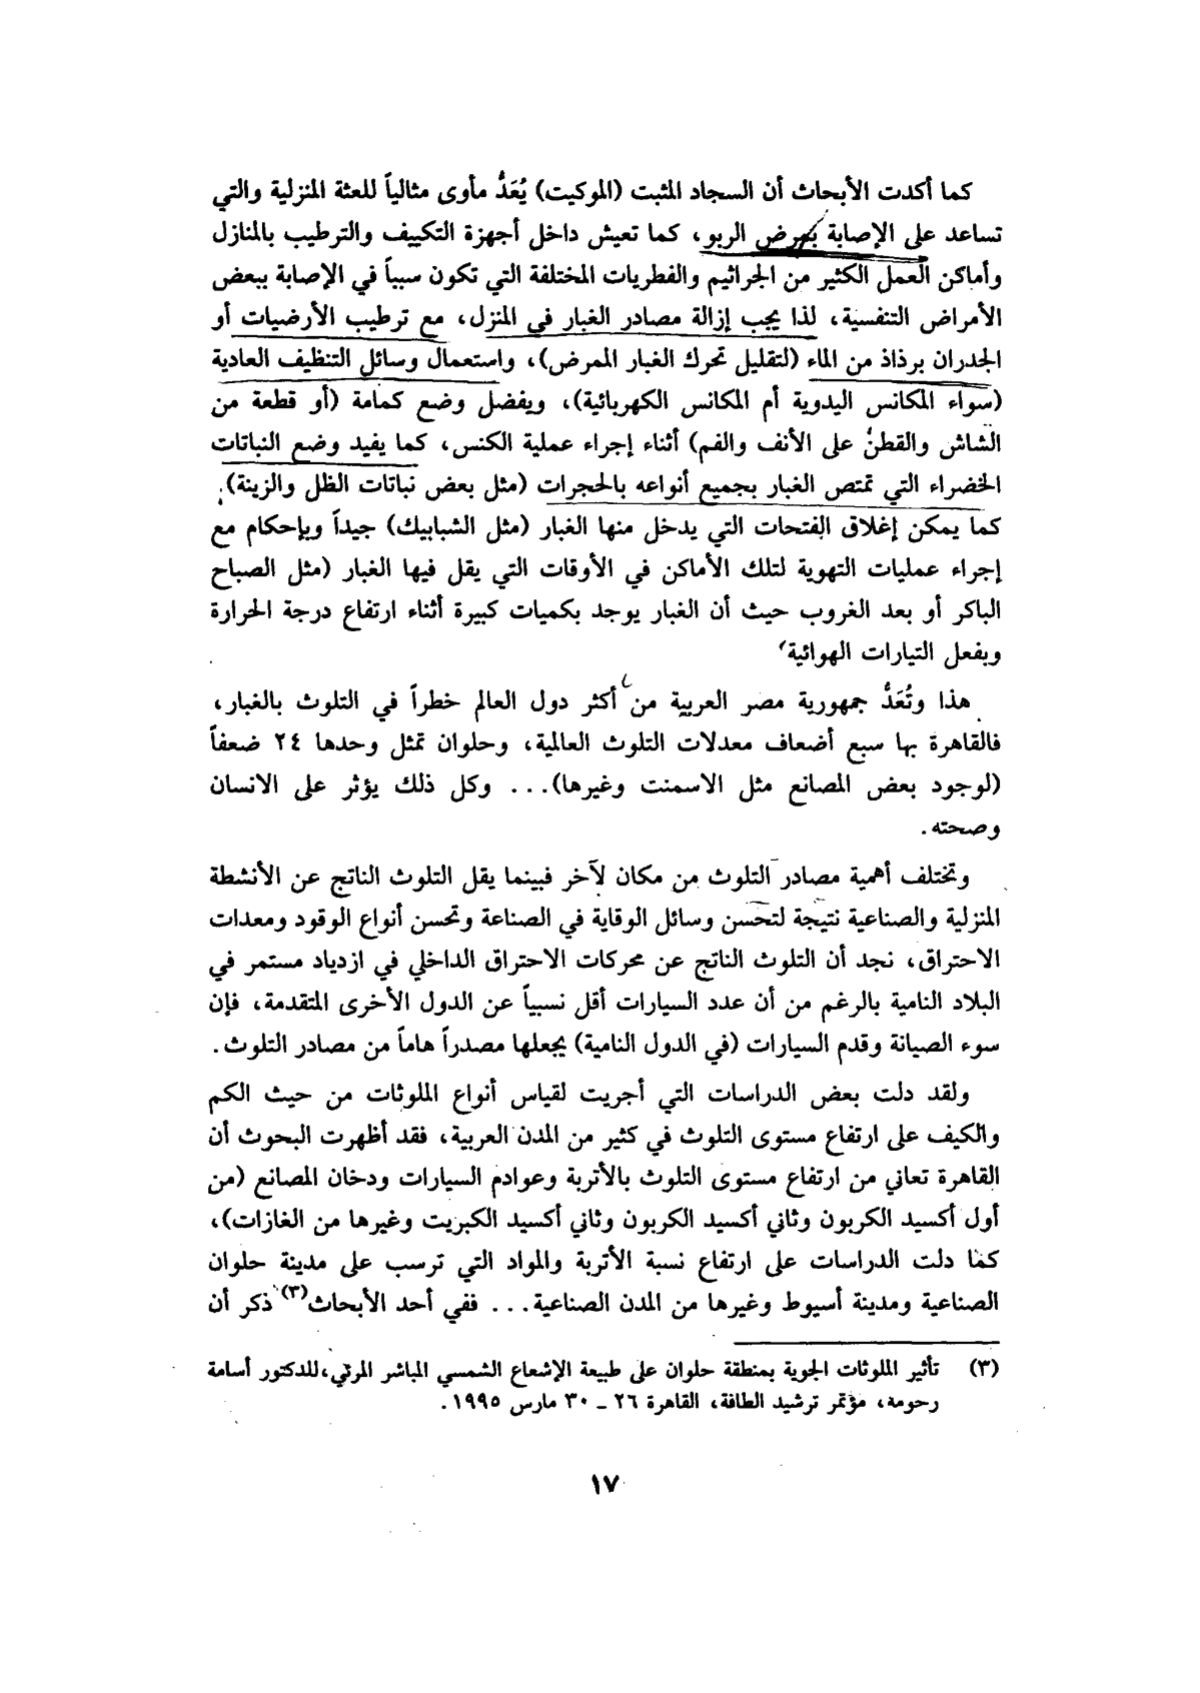 كما أكدت الأبحاث أن السجاد المثبت (الموكيت) يُعَدُّ مأوى مثالياً للعثة المنزلية والتي
تساعد على الإصابة بمرض الربو، كما تعيش داخل أجهزة التكييف والترطيب بالمنازل
وأماكن العمل الكثير من الجراثيم والفطريات المختلفة التي تكون سبباً في الإصابة ببعض
الأمراض التنفسية، لذا يجب إزالة مصادر الغبار في المنزل، مع ترطيب الأرضيات أو
الجدران برذاذ من الماء (لتقليل تحرك الغبار الممرض)، واستعمال وسائل التنظيف العادية
(سواء المكانس اليدوية أم المكانس الكهربائية)، ويفضل وضع كمامة (أو قطعة من
الشاش والقطن على الأنف والفم) أثناء إجراء عملية الكنس، كما يفيد وضع النباتات
الخضراء التي تمتص الغبار بجميع أنواعه بالحجرات (مثل بعض نباتات الظل والزينة).
كما يمكن إغلاق الفتحات التي يدخل منها الغبار (مثل الشبابيك) جيداً وبإحكام مع
إجراء عمليات التهوية لتلك الأماكن في الأوقات التي يقل فيها الغبار (مثل الصباح
الباكر أو بعد الغروب حيث أن الغبار يوجد بكميات كبيرة أثناء ارتفاع درجة الحرارة
وبفعل التيارات الهوائية
هذا وتُعَدُّ جمهورية مصر العربية من أكثر دول العالم خطراً في التلوث بالغبار،
فالقاهرة بها سبع أضعاف معدلات التلوث العالمية، وحلوان تمثل وحدها ٢٤ ضعفاً
(لوجود بعض المصانع مثل الاسمنت وغيرها)... وكل ذلك يؤثر على الانسان
وصحته.
وتختلف أهمية مصادر التلوث من مكان لآخر فبينما يقل التلوث الناتج عن الأنشطة
المنزلية والصناعية نتيجة لتحسن وسائل الوقاية في الصناعة وتحسن أنواع الوقود ومعدات
الاحتراق، نجد أن التلوث الناتج عن محركات الاحتراق الداخلي في ازدياد مستمر في
البلاد النامية بالرغم من أن عدد السيارات أقل نسبياً عن الدول الأخرى المتقدمة، فإن
سوء الصيانة وقدم السيارات (في الدول النامية) يجعلها مصدراً هاماً من مصادر التلوث.
ولقد دلت بعض الدراسات التي أجريت لقياس أنواع الملوثات من حيث الكم
والكيف على ارتفاع مستوى التلوث في كثير من المدن العربية، فقد أظهرت البحوث أن
القاهرة تعاني من ارتفاع مستوى التلوث بالأتربة وعوادم السيارات ودخان المصانع (من
أول أكسيد الكربون وثاني أكسيد الكربون وثاني أكسيد الكبريت وغيرها من الغازات)،
كما دلت الدراسات على ارتفاع نسبة الأتربة والمواد التي ترسب على مدينة حلوان
الصناعية ومدينة أسيوط وغيرها من المدن الصناعية... ففي أحد الأبحاث(٣) ذكر أن
(٣) تأثير الملوثات الجوية بمنطقة حلوان على طبيعة الإشعاع الشمسي المباشر المرئي، للدكتور أسامة
رحومه، مؤتمر ترشيد الطاقة، القاهرة ٢٦ - ٣٠ مارس ١٩٩٥.
١٧